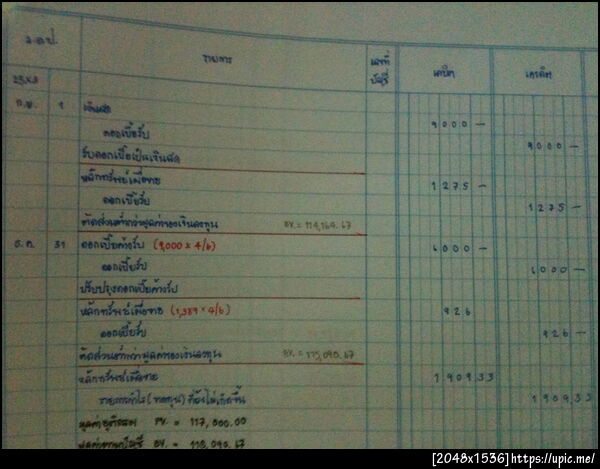 ว.ด.ป. รายการ เลขที่บัญชี เดบิต เครดิต
25X3
ก.ย. 1 เงินสด 9000 –
ดอกเบี้ยรับ 9000 –
รับดอกเบี้ยเป็นเงินสด
หลักทรัพย์เผื่อขาย 1275 –
ดอกเบี้ยรับ 1275 –
ตัดส่วนต่ำกว่ามูลค่าของเงินลงทุน BV. = 114,164.67
ธ.ค. 31 ดอกเบี้ยค้างรับ (9,000 x 4/6) 6000 –
ดอกเบี้ยรับ 6000 –
ปรับปรุงดอกเบี้ยค้างรับ
หลักทรัพย์เผื่อขาย (1,389 x 4/6) 926
ดอกเบี้ยรับ 926 –
ตัดส่วนต่ำกว่ามูลค่าของเงินลงทุน BV. = 115,090.67
หลักทรัพย์เผื่อขาย 1909.33
รายการกำไร (ขาดทุน) ที่ยังไม่เกิดขึ้น 1909.33
มูลค่ายุติธรรม FV. = 117,000.00
BV. = 115,090.67
[2048x1536]https://upic.me/